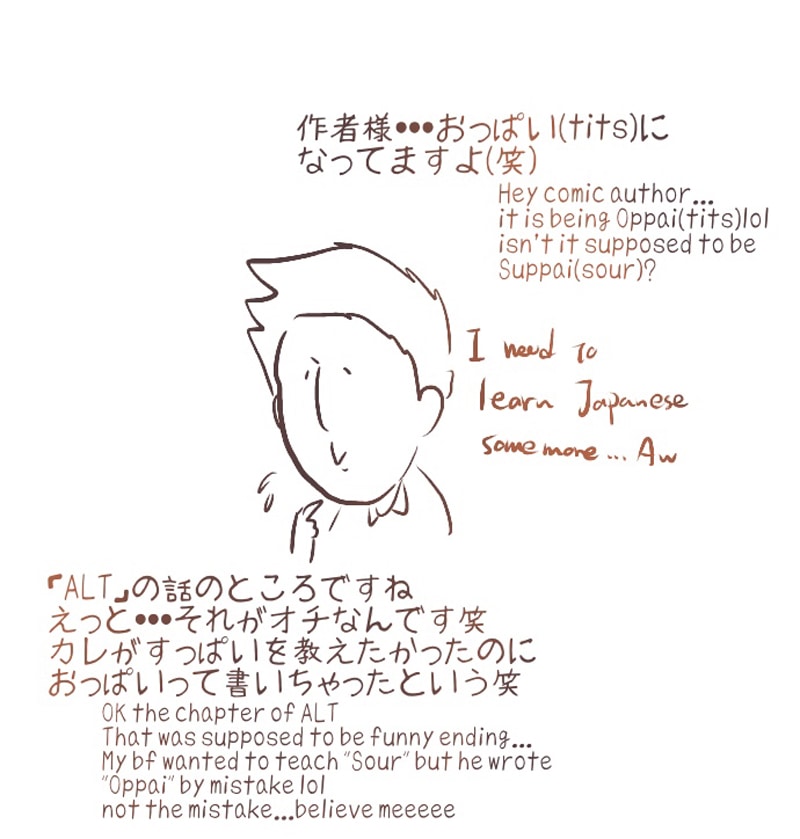 作者様•••おっぱい(tits)に
なってますよ(笑)
Hey comic author...
it is being Oppai(tits)lol
isn't it supposed to be
Suppai(sour)?
I need to
learn Japanese
some more... Aw
「ALT」の話のところですね
えっと•••それがオチなんです笑
カレがすっぱいを教えたかったのに
おっぱいって書いちゃったという笑
OK the chapter of ALT
That was supposed to be funny ending...
My bf wanted to teach "Sour" but he wrote
"Oppai" by mistake lol
not the mistake...believe meeeee